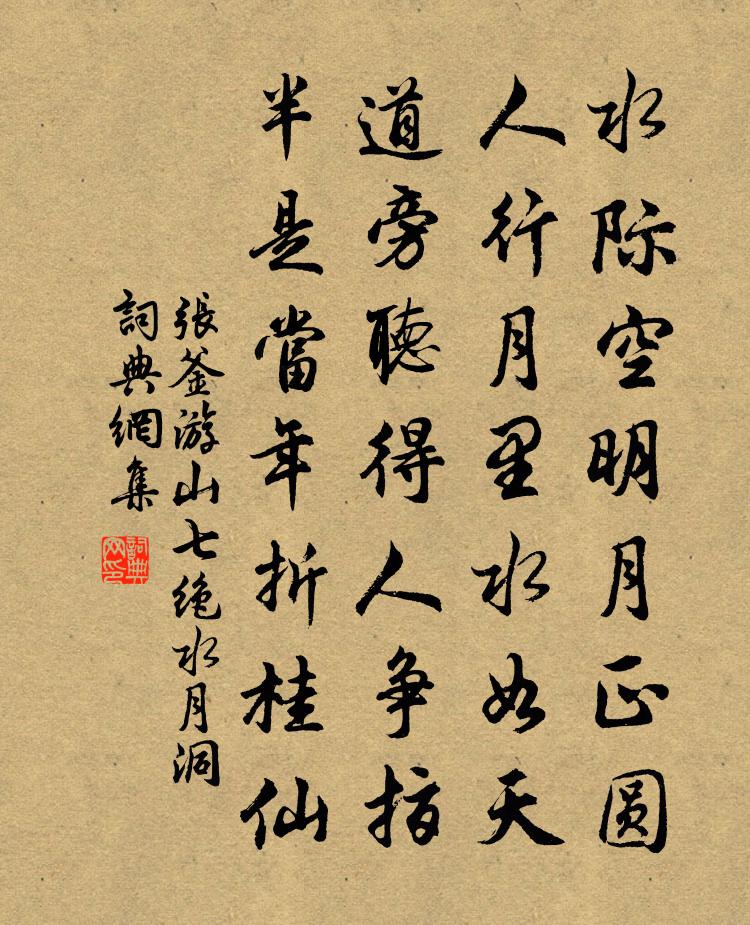 水际空明月正圆
人行月里水如天
道旁聽得人争指
半是當年折桂仙
張釜游山七绝水月洞
詞典網集
詞典網印